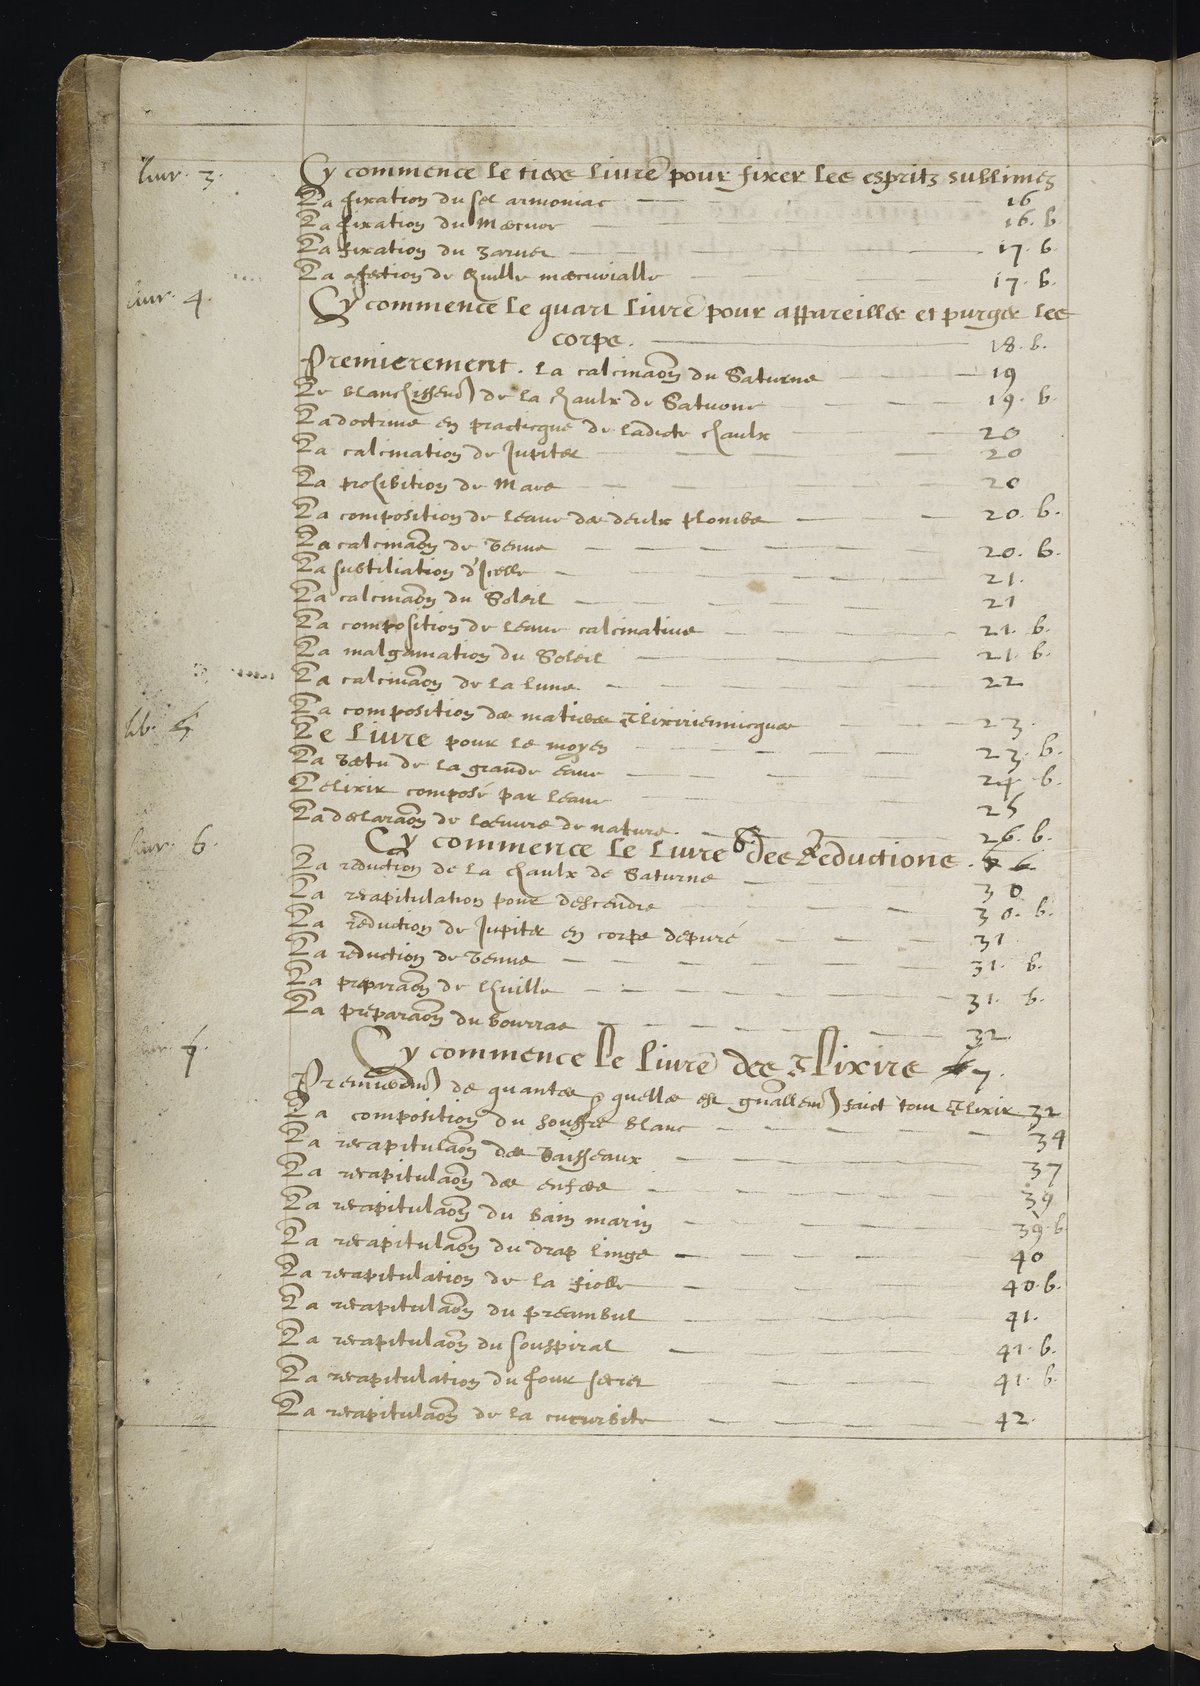 liur. 3. Cy commence le tiers livre pour fixer les espritz sublimez
La fixation du sel armoniac 16
La fixation du Mercure 16. b.
La fixation du zarnet 17. b
La afection de huille mercurialle 17. b.
liur. 4. Cy commence le quart livre pour appareiller et purger les
corps. 18. b.
Premierement. La calcinaon du Saturne 19
Le blanchissem de la chaulx de Saturne 19. b.
La doctrine en practicque de ladicte chaulx 20
La calcination de Jupiter 20
La prohibition de Mars 20
La composition de leaue des deulx plombs 20. b.
La calcinaon de Venus 20. b.
La subtiliation d'icelle 21.
La calcinaon du Soleil 21
La composition de leaue calcinative 21. b.
La malgamation du Soleil 21. b.
La calcinaon de la lune 22
La composition des matieres Elixiriennicques 23.
lib. 5 Le Livre pour le moyen 23. b.
La vertu de la grande eaue 24. b.
Lelixir composé par leaue 25
La declaraon de loeuvre de nature. 26. b.
liur. 6. Cy commence le livre 6 des Reductions. 6
La reduction de la chaulx de Saturne 30
La recapitulation pour descendre 30. b.
La reduction de Jupiter en corps depuré 31
La reduction de Venus 31. b.
La preparaon de lhuille 31. b.
La preparaon du bourras 32.
liur. 7. Cy commence le livre des Elixirs 7.
Premierem de quantes & quelles est gnallem faict tout Elixir 32
La composition du souffre blanc 34
La recapitulaon des vaisseaux 37
La recapitulaon des 39
La recapitulaon du bain marin 39. b
La recapitulaon du drap linge 40
La recapitulation de la fiolle 40. b.
La recapitulaon du preambul 41.
La recapitulaon du souspiral 41. b.
La recapitulation du four secret 41. b
La recapitulaon de la cucurbite 42